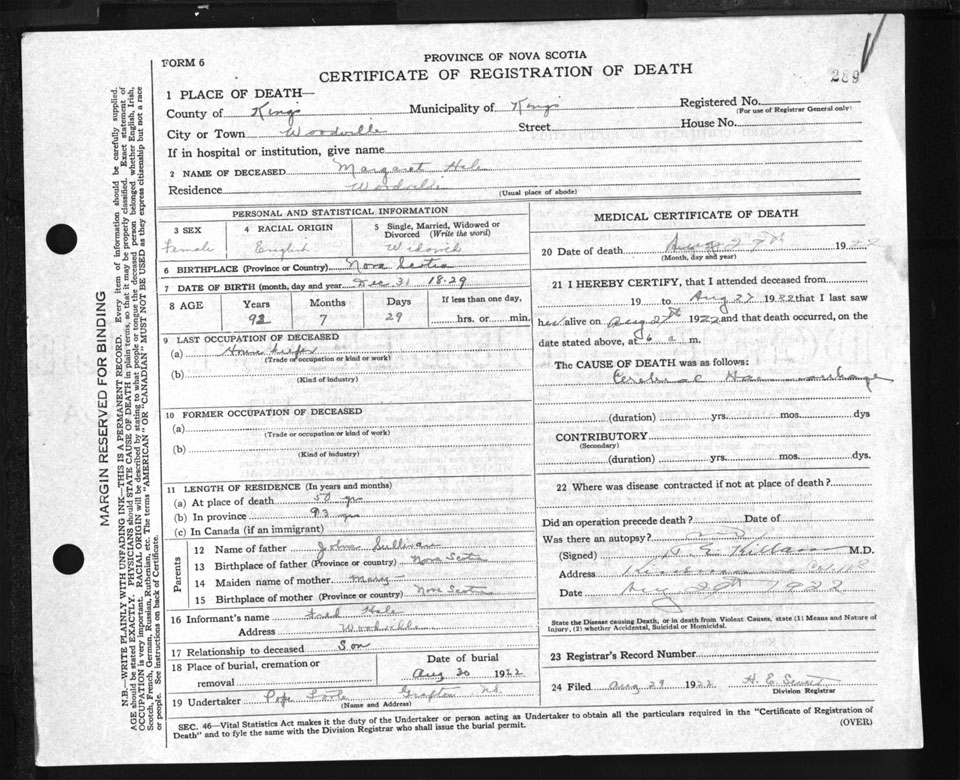 289
FORM 6
PROVINCE OF NOVA SCOTIA
CERTIFICATE OF REGISTRATION OF DEATH
MARGIN RESERVED FOR BINDING
N.B.—WRITE PLAINLY WITH UNFADING INK—THIS IS A PERMANENT RECORD. Every item of information should be carefully supplied.
AGE should be stated EXACTLY. PHYSICIANS should STATE CAUSE OF DEATH in plain terms, so that it may be properly classified. Exact statement of
OCCUPATION is very important. RACIAL ORIGIN will be described by stating to what people or tongue the deceased person belonged whether English, Irish,
Scotch, French, German, Russian, Ruthenian, etc. The terms "AMERICAN" OR "CANADIAN" MUST NOT BE USED as they express citizenship but not a race
or people. See instructions on back of Certificate.
1 PLACE OF DEATH—
County of Kings Municipality of Kings Registered No.
(For use of Registrar General only)
City or Town Woodville Street House No.
If in hospital or institution, give name
2 NAME OF DECEASED Margaret Hale
Residence Woodville
(Usual place of abode)
PERSONAL AND STATISTICAL INFORMATION
3 SEX 4 RACIAL ORIGIN 5 Single, Married, Widowed or Divorced (Write the word)
Female English
6 BIRTHPLACE (Province or Country) Nova Scotia
7 DATE OF BIRTH (month, day and year Dec 31 1829
8 AGE Years Months Days If less than one day,
92 7 29 hrs. or min.
9 LAST OCCUPATION OF DECEASED
(a) House keeper
(Trade or occupation or kind or work)
(b)
(Kind of industry)
10 FORMER OCCUPATION OF DECEASED
(a)
(Trade or occupation or kind of work)
(b)
(Kind of industry)
11 LENGTH OF RESIDENCE (In years and months)
(a) At place of death 50 yrs
(b) In province 93 yrs
(c) In Canada (if an immigrant)
Parents
12 Name of father John Sullivan
13 Birthplace of father (Province or country) Nova Scotia
14 Maiden name of mother Mary —
15 Birthplace of mother (Province or country) Nova Scotia
16 Informant's name Fred Hale
Address Woodville
17 Relationship to deceased Son
18 Place of burial, cremation or removal
Date of burial
Aug 30 1922
19 Undertaker Grafton N.S.
(Name and Address)
MEDICAL CERTIFICATE OF DEATH
20 Date of death Aug 27th 1922
(Month, day and year)
21 I HEREBY CERTIFY, that I attended deceased from
19 to Aug 27 1922 that I last saw
her alive on Aug 27th 1922 and that death occurred, on the
date stated above, at 6 a m.
The CAUSE OF DEATH was as follows:
Cerebral Haemorrhage
(duration) yrs. mos. dys
CONTRIBUTORY
(Secondary)
(duration) yrs. mos. dys.
22 Where was disease contracted if not at place of death?
Did an operation precede death? Date of
Was there an autopsy?
(Signed) M.D.
Address
Date Aug 29th 1922
State the Disease causing Death, or in death from Violent Causes, state (1) Means and Nature of
Injury, (2) whether Accidental, Suicidal or Homicidal.
23 Registrar's Record Number
24 Filed Aug 29 1922
Division Registrar
SEC. 46—Vital Statistics Act makes it the duty of the Undertaker or person acting as Undertaker to obtain all the particulars required in the "Certificate of Registration of
Death" and to fyle the same with the Division Registrar who shall issue the burial permit.
(OVER)